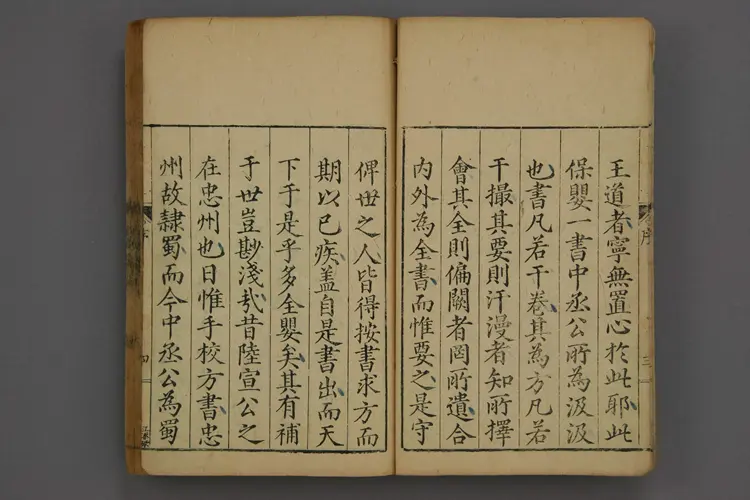 王道者寧無置心扵此耶此
保嬰一書中丞公所為汲汲
也書凡若干卷其為方凡若
干撮其要則汗漫者知所擇
會其全則偏闕者罔所遺合
內外為全書而惟要之是守
序
三
俾世之人皆得按書求方而
期以已疾盖自是書出而天
下于是乎多全嬰矣其有補
于世豈尠淺㢤昔陸宣公之
在忠州也日惟手校方書忠
州故隷蜀而今中丞公為蜀
序
四